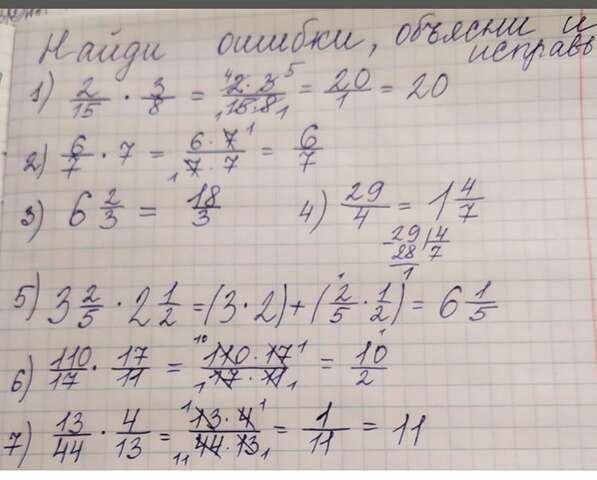 Найди ошибки, объясни и
исправь
1) 2/15 · 3/8 = 2·3/15·8 = 20/1 = 20
4 5
1 1
2) 6/7 · 7 = 6·7/7·7 = 6/7
1
1
3) 6 2/3 = 18/3 4) 29/4 = 1 4/7
-29 | 4
28 7
1
5) 3 2/5 · 2 1/2 = (3·2) + (2/5 · 1/2) = 6 1/5
6) 110/17 · 17/11 = 110·17/17·11 = 10/2
10 1
1 1
7) 13/44 · 4/13 = 13·4/44·13 = 1/11 = 11
1 1
11 1